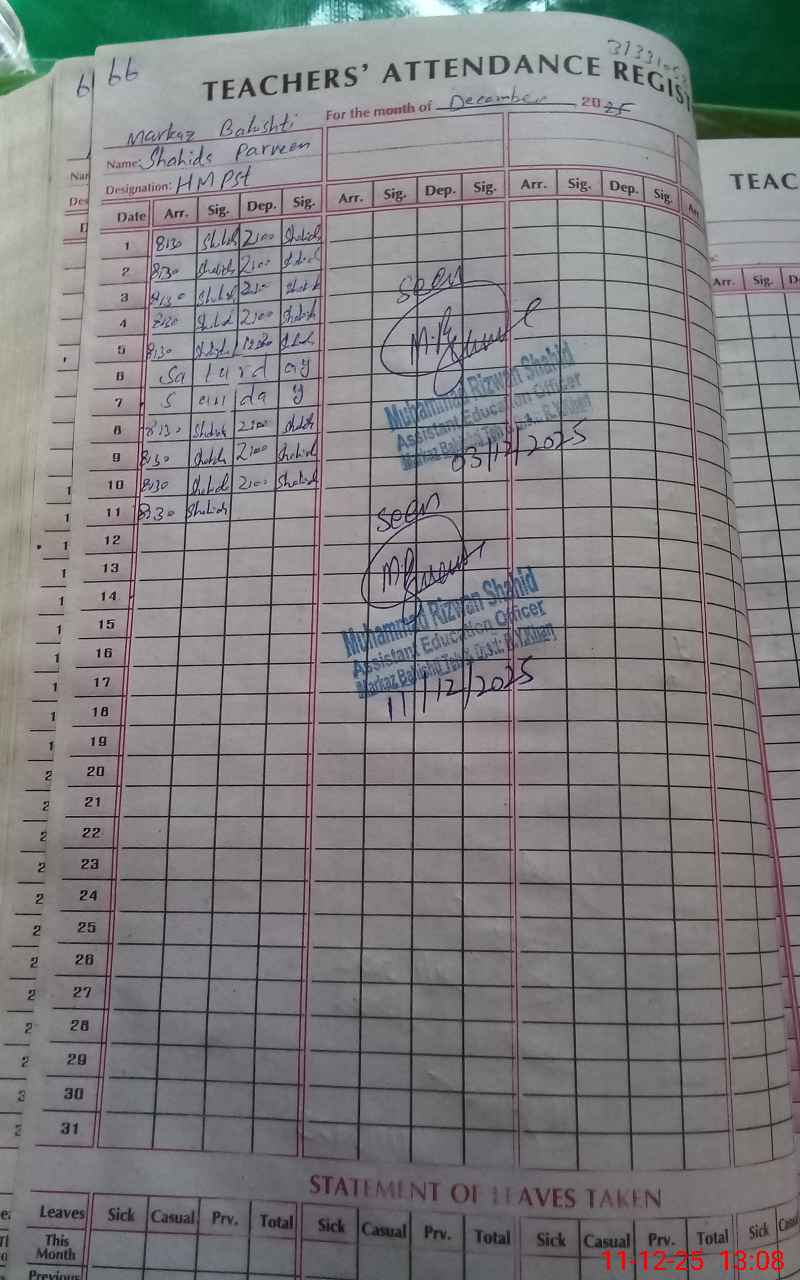 66
TEACHERS' ATTENDANCE REGIST
For the month of December 2025
Markaz Bahishti
Name: Shahida Parveen
Designation: HM PST
Date Arr. Sig. Dep. Sig. Arr. Sig. Dep. Sig. Arr. Sig. Dep. Sig. Arr
1 8:30 Shahida 2:00 Shahida
2 8:30 Shahida 2:00 Shahida
3 8:30 Shahida 2:00 Shahida
4 8:30 Shahida 2:00 Shahida
5 8:30 Shahida Shahida
6 Saturday
7 Sunday
8 8:30 Shahida 2:00 Shahida
9 8:30 Shahida 2:00 Shahida
10 8:30 Shahida 2:00 Shahida
11 8:30 Shahida
12
13
14
15
16
17
18
19
20
21
22
23
24
25
26
27
28
29
30
31
seen
Muhammad Rizwan Shahid
Assistant Education Officer
Markaz Bahishti Teh & Distt: R.Y.Khan
03/12/2025
seen
Muhammad Rizwan Shahid
Assistant Education Officer
Markaz Bahishti Teh & Distt: R.Y.Khan
11/12/2025
STATEMENT OF LEAVES TAKEN
Leaves Sick Casual Prv. Total Sick Casual Prv. Total Sick Casual Prv. Total Sick Casu
This Month
Previous
TEAC
Arr. Sig. D
11-12-25 13:08